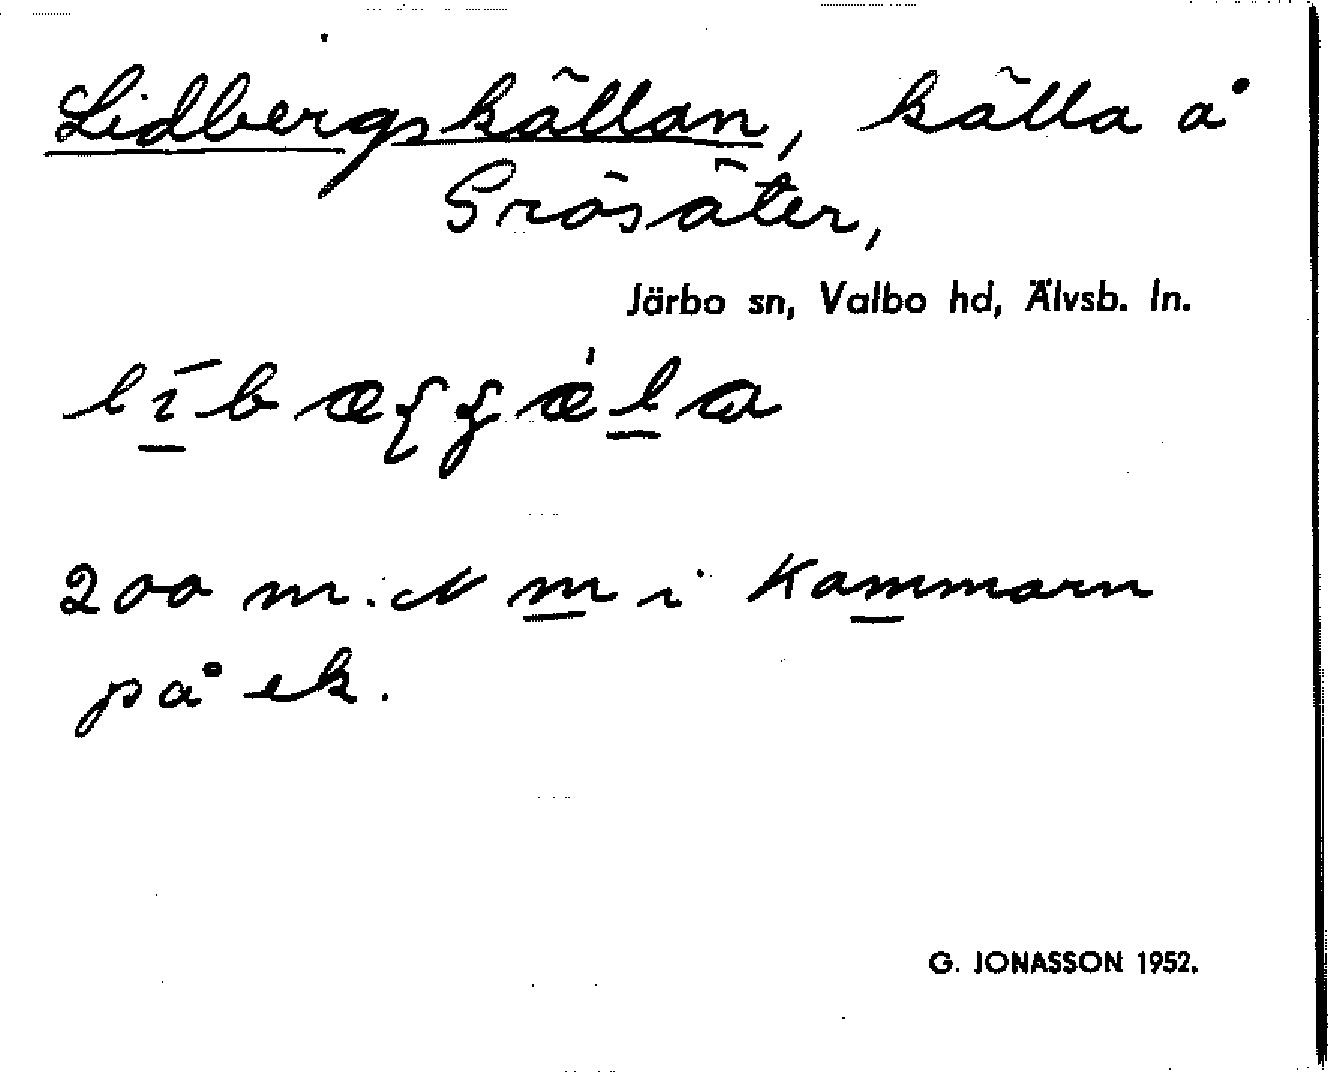 Lidbergskällan, källa å
Grösäter,
Järbo sn, Valbo hd, Älvsb. ln.
200 m. N m i Kammarn
på ek.
G. JONASSON 1952.